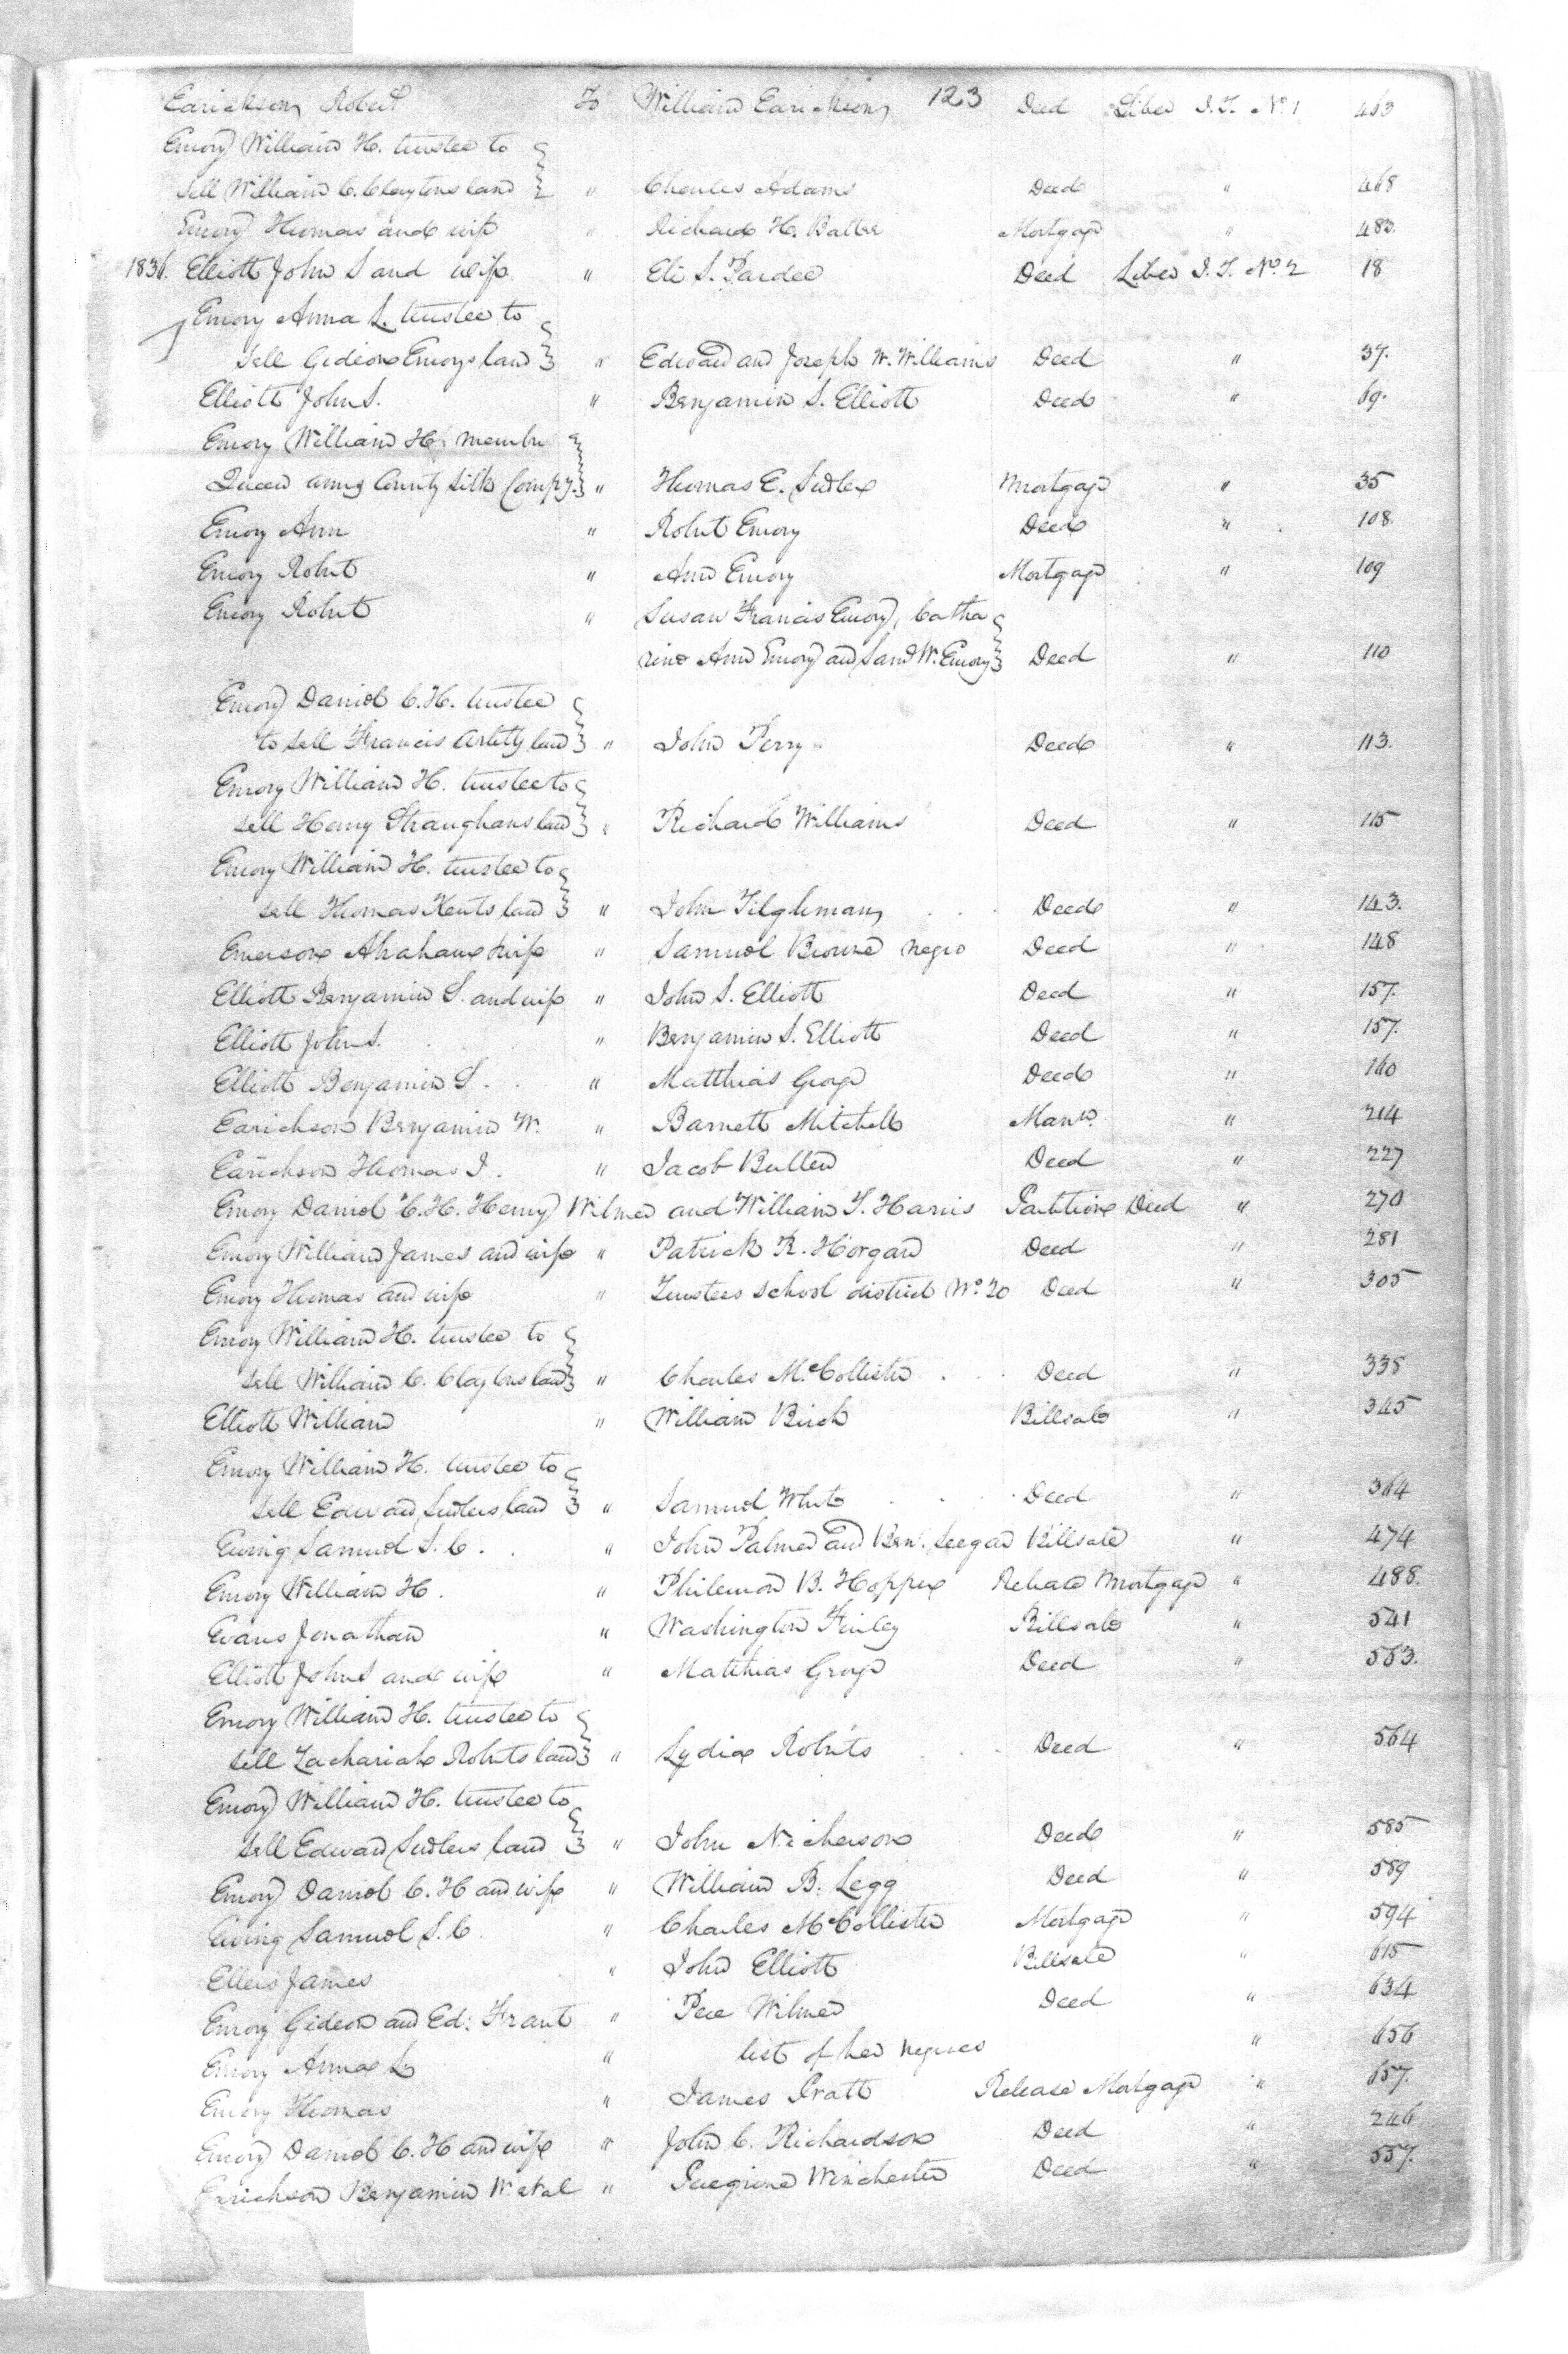 Earickson Robert To William Earickson 123 Deed Liber I.T. No. 1 463
Emory William H. trustee to
sell William C. Claytons land " Charles Adams Deed " 468
Emory Thomas and wife " Richard H. Mortgage " 483.
1836. Elliott John S and wife " Eli S. Pardee Deed Liber I.T. No. 2 18
Emory Anna L. trustee to
sell Gideon Emorys land " Edward and Joseph W. Williams Deed " 37.
Elliott John S. " Benjamin S. Elliott Deed " 69.
Emory William H. member
Queen anns County Silk Compy. " Thomas E. Sudler Mortgage " 35
Emory Ann " Robert Emory Deed " 108.
Emory Robert " Ann Emory Mortgage " 109
Emory Robert " Susan Francis Emory, Catha
rine Ann Emory and W. Emory Deed " 110
Emory Daniel C. H. trustee
to sell Francis land " John Perry Deed " 113.
Emory William H. trustee to
sell Henry Straughans land " Richard Williams Deed " 115
Emory William H. trustee to
sell Thomas Kents land " John Tilghman Deed " 143.
Emerson Abraham & wife " Samuel Browne negro Deed " 148
Elliott Benjamin S. and wife " John S. Elliott Deed " 157.
Elliott John S. " Benjamin S. Elliott Deed " 157.
Elliott Benjamin S. " Matthias George Deed " 160
Earickson Benjamin W. " Barnett Mitchell Mann. " 214
Earickson Thomas I. " Jacob Bullen Deed " 227
Emory Daniel C. H. Henry Wilmer and William T. Harris Partition Deed " 270
Emory William James and wife " Patrick R. Horgan Deed " 281
Emory Thomas and wife " Trustees school district No. 20 Deed " 305
Emory William H. trustee to
sell William C. Claytons land " Charles McCollister Deed " 338
Elliott William " William Birch Billsale " 345
Emory William H. trustee to
sell Edward Sudlers land " Samuel White Deed " 364
Ewing Samuel S. C. " John Palmer and Ben. Seegar Billsale " 474
Emory William H. " Philemon B. Hopper Release Mortgage " 488.
Evans Jonathan " Washington Finley Billsale " 541
Elliott John S and wife " Matthias George Deed " 563.
Emory William H. trustee to
sell Zachariah Roberts land " Lydia Roberts Deed " 564
Emory William H. trustee to
sell Edward Sudlers land " John Nickerson Deed " 585
Emory Daniel C. H and wife " William B. Legg Deed " 589
Ewing Samuel S. C. " Charles McCollister Mortgage " 594
Ellers James " John Elliott Billsale " 615
Emory Gideon and Ed. Trant " Pere Wilmer Deed " 634
Emory Anna L " list of her negroes " 656
Emory Thomas " James Pratt Release Mortgage " 657.
Emory Daniel C. H and wife " John C. Richardson Deed " 246
Earickson Benjamin W et al " Peregrine Winchester Deed " 557.